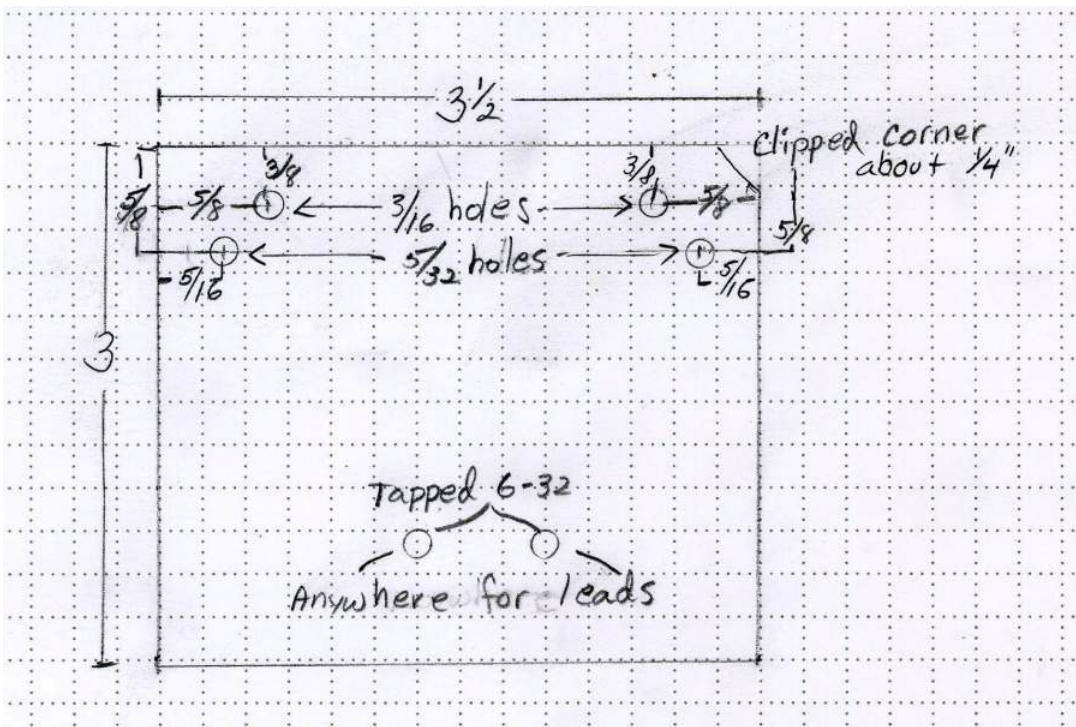 3 1/2
Clipped corner
about 1/4"
3/8
3/8
5/8
5/8
3/16 holes
5/8
5/8
5/32 holes
5/16
5/16
3
Tapped 6-32
Anywhere for leads